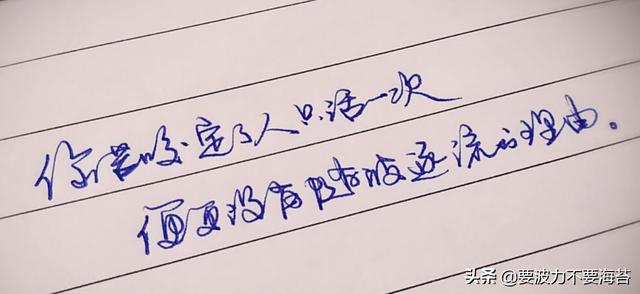 你若咬定了人只活一次
便更没有随波逐流的理由。
头条 @要波力不要海苔